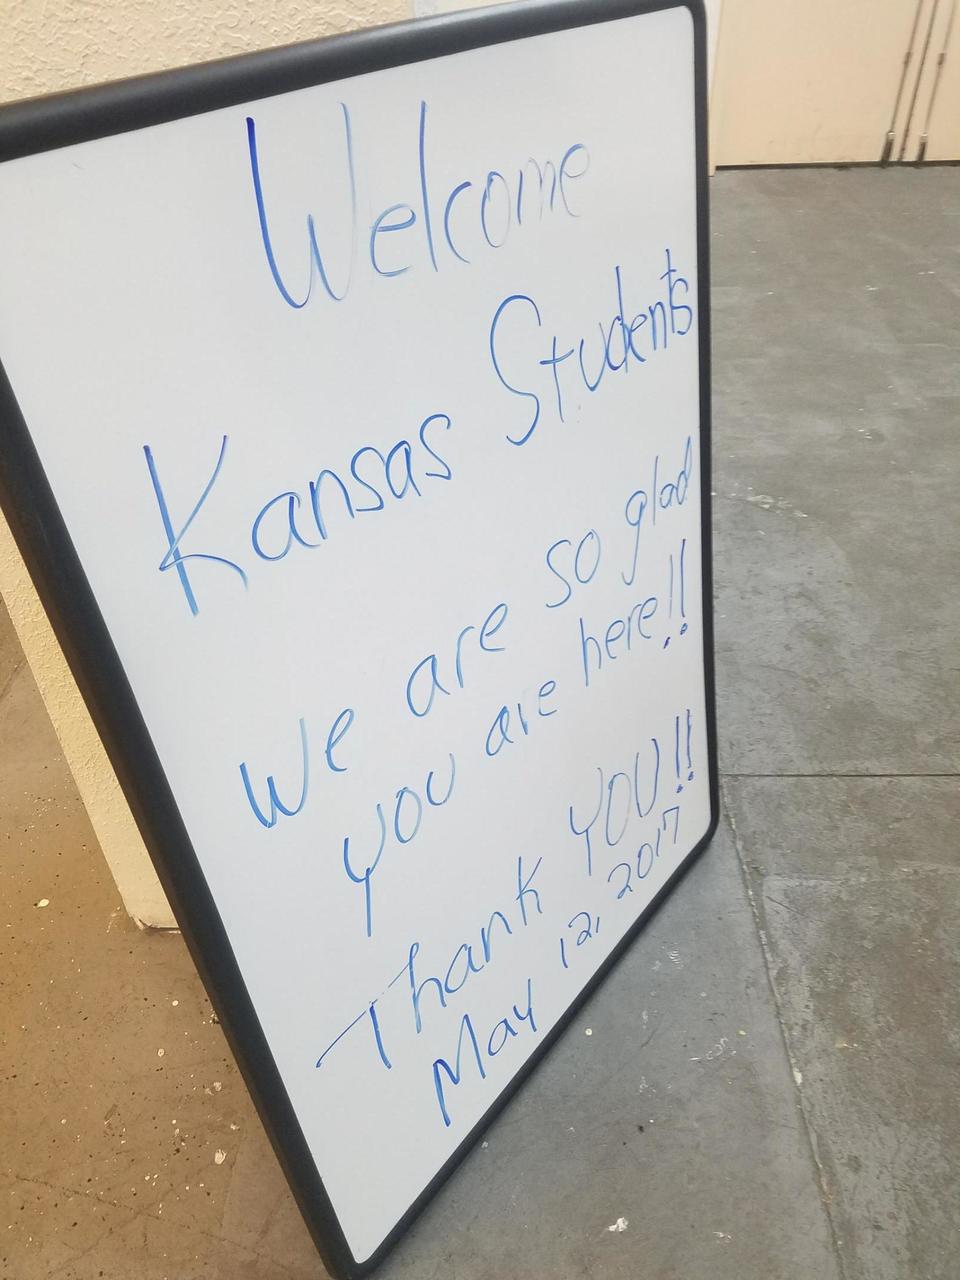 Welcome
Kansas Students
We are so glad
you are here!!
Thank YOU!!
May 12, 2017